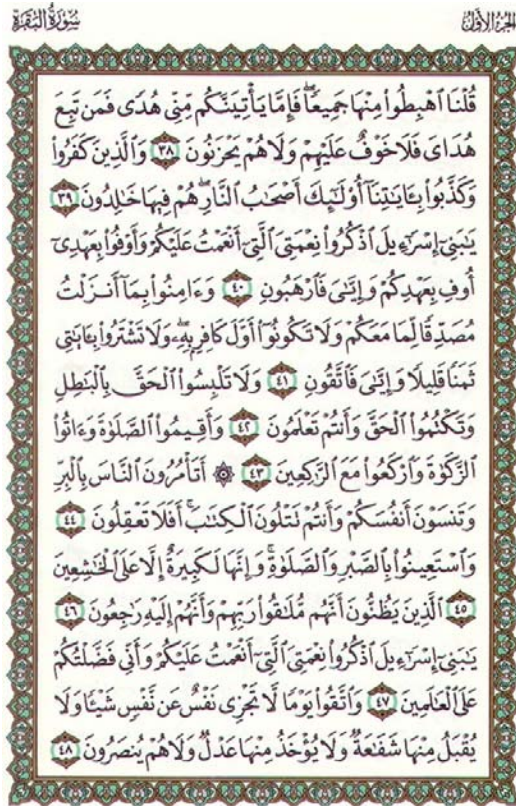 الجزء الأول
سورة البقرة
قُلْنَا ٱهْبِطُوا۟ مِنْهَا جَمِيعًۭا ۖ فَإِمَّا يَأْتِيَنَّكُم مِّنِّى هُدًۭى فَمَن تَبِعَ
هُدَاىَ فَلَا خَوْفٌ عَلَيْهِمْ وَلَا هُمْ يَحْزَنُونَ ٣٨ وَٱلَّذِينَ كَفَرُوا۟
وَكَذَّبُوا۟ بِـَٔايَـٰتِنَآ أُو۟لَـٰٓئِكَ أَصْحَـٰبُ ٱلنَّارِ ۖ هُمْ فِيهَا خَـٰلِدُونَ ٣٩
يَـٰبَنِىٓ إِسْرَٰٓءِيلَ ٱذْكُرُوا۟ نِعْمَتِىَ ٱلَّتِىٓ أَنْعَمْتُ عَلَيْكُمْ وَأَوْفُوا۟ بِعَهْدِىٓ
أُوفِ بِعَهْدِكُمْ وَإِيَّـٰىَ فَٱرْهَبُونِ ٤٠ وَءَامِنُوا۟ بِمَآ أَنزَلْتُ
مُصَدِّقًۭا لِّمَا مَعَكُمْ وَلَا تَكُونُوٓا۟ أَوَّلَ كَافِرٍۭ بِهِۦ ۖ وَلَا تَشْتَرُوا۟ بِـَٔايَـٰتِى
ثَمَنًۭا قَلِيلًۭا وَإِيَّـٰىَ فَٱتَّقُونِ ٤١ وَلَا تَلْبِسُوا۟ ٱلْحَقَّ بِٱلْبَـٰطِلِ
وَتَكْتُمُوا۟ ٱلْحَقَّ وَأَنتُمْ تَعْلَمُونَ ٤٢ وَأَقِيمُوا۟ ٱلصَّلَوٰةَ وَءَاتُوا۟
ٱلزَّكَوٰةَ وَٱرْكَعُوا۟ مَعَ ٱلرَّٰكِعِينَ ٤٣ ۞ أَتَأْمُرُونَ ٱلنَّاسَ بِٱلْبِرِّ
وَتَنسَوْنَ أَنفُسَكُمْ وَأَنتُمْ تَتْلُونَ ٱلْكِتَـٰبَ ۚ أَفَلَا تَعْقِلُونَ ٤٤
وَٱسْتَعِينُوا۟ بِٱلصَّبْرِ وَٱلصَّلَوٰةِ ۚ وَإِنَّهَا لَكَبِيرَةٌ إِلَّا عَلَى ٱلْخَـٰشِعِينَ
٤٥ ٱلَّذِينَ يَظُنُّونَ أَنَّهُم مُّلَـٰقُوا۟ رَبِّهِمْ وَأَنَّهُمْ إِلَيْهِ رَٰجِعُونَ ٤٦
يَـٰبَنِىٓ إِسْرَٰٓءِيلَ ٱذْكُرُوا۟ نِعْمَتِىَ ٱلَّتِىٓ أَنْعَمْتُ عَلَيْكُمْ وَأَنِّى فَضَّلْتُكُمْ
عَلَى ٱلْعَـٰلَمِينَ ٤٧ وَٱتَّقُوا۟ يَوْمًۭا لَّا تَجْزِى نَفْسٌ عَن نَّفْسٍۢ شَيْـًۭٔا وَلَا
يُقْبَلُ مِنْهَا شَفَـٰعَةٌۭ وَلَا يُؤْخَذُ مِنْهَا عَدْلٌۭ وَلَا هُمْ يُنصَرُونَ ٤٨